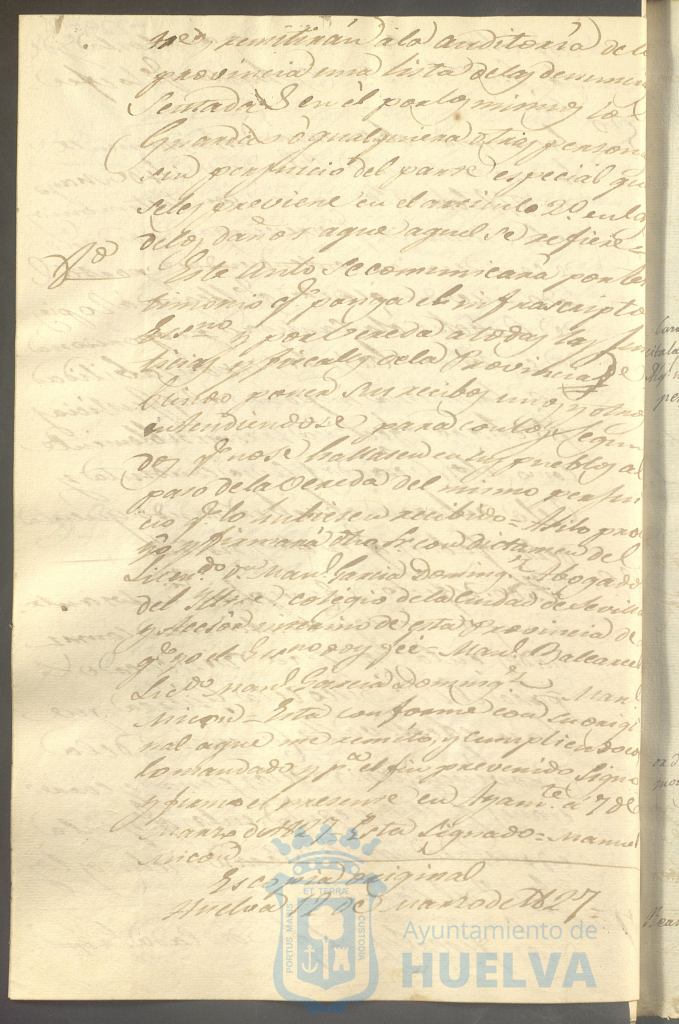 nes, remitiran a la auditoria de la
provincia una lista de las denuncias
sentadas en el por los mismos
Guardas o qualquiera otras personas
sin perjuicio del parte especial que
se les previene en el articulo 20 en la
de los daños a que aquel se refiere =
Este Auto se comunicará por tes
timonio qe. ponga el infrascripto
Essno. y por Vereda a todas las jus
ticias y fiscales de la Provincia
unos y otros
entendiendose para con los segun
dos qe. no se hallasen en sus pueblos al
paso de la Vereda del mismo perjui
cio qe. lo hubiesen recibido = Asi lo pro
veyo y firmará dho Sr. con dictamen del
Licendo. Dn. Manl. Garcia Domingz. Abogado
del Iltre. colegio de la Ciudad de Sevilla
y Asesor interino de esta Provincia de
qe. yo el Essno doy fee = Manl.
Licdo. Manl. Garcia Domingz. = Manl.
Micon = Está conforme con su origi
nal a que me remito, y cumpliendo con
lo mandado y pa. el fin prevenido signo
y firmo el presente en Ayamte. a 7 de
Marzo de 1827 Esta Signado = Manuel
Micon
Es copia original
Huelva 12 de Marzo de 1827
PORTUS MARIS
ET TERRÆ
CUSTODIA
Ayuntamiento de
HUELVA